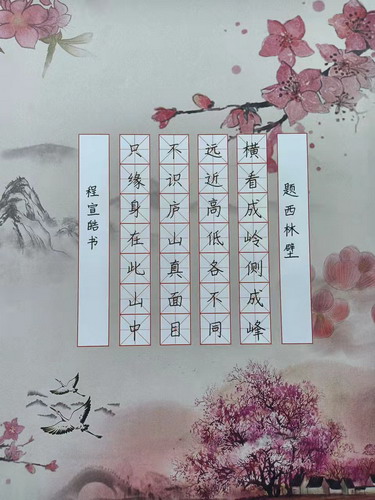 题西林壁
横看成岭侧成峰
远近高低各不同
不识庐山真面目
只缘身在此山中
程宣皓书